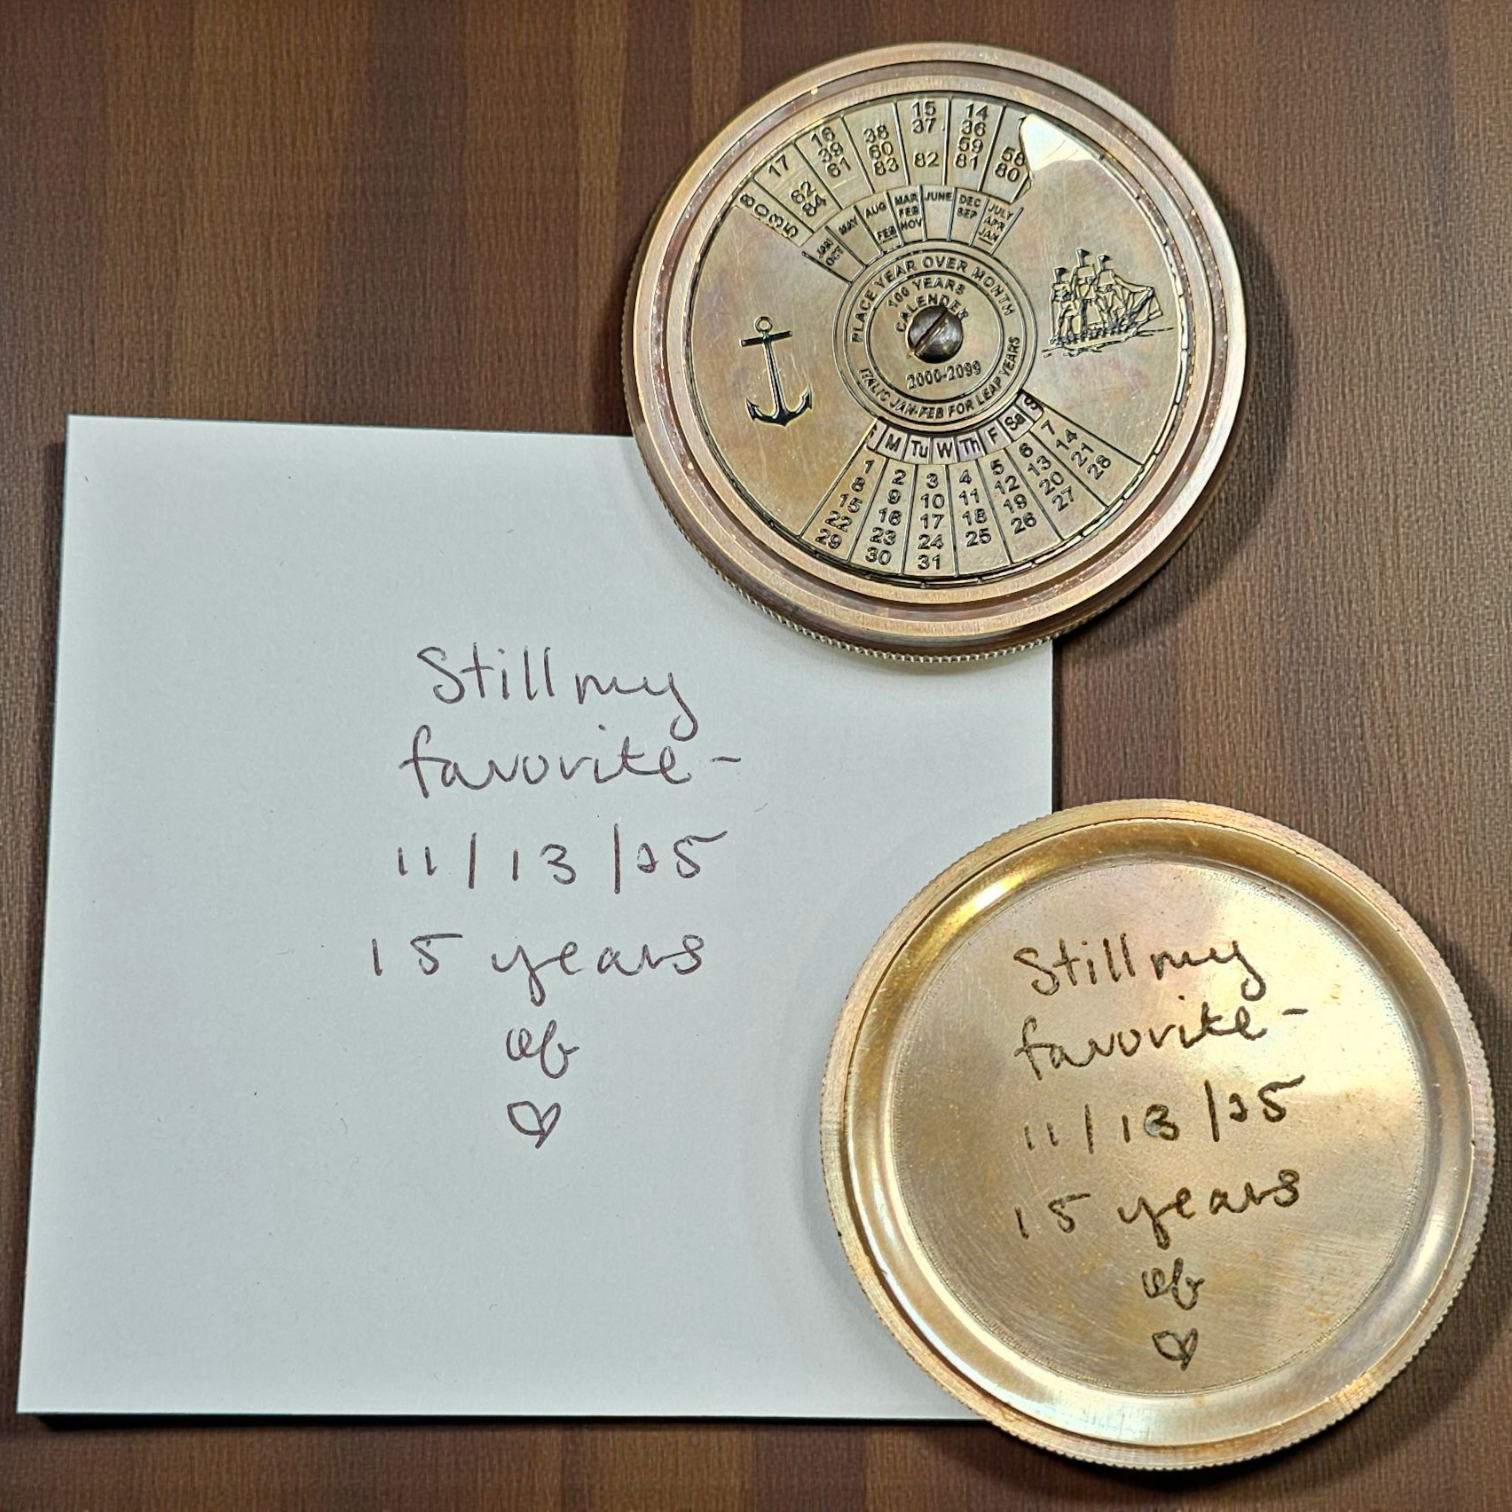 15 14
16 38 37 36
17 39 60 59 58
61 83 82 81 80
8 62
03 84
JAN OCT MAY AUG FEB MAR FEB NOV JUNE DEC SEP JULY APR JAN
PLACE YEAR OVER MONTH
100 YEARS
CALENDER
2000-2099
ITALIC JAN-FEB FOR LEAP YEARS
M Tu W Th F Sa S
1 2 3 4 5 6 7
8 9 10 11 12 13 14
15 16 17 18 19 20 21
22 23 24 25 26 27 28
29 30 31
Still my
favorite -
11/13/25
15 years
of
♡
Still my
favorite -
11/13/25
15 years
of
♡